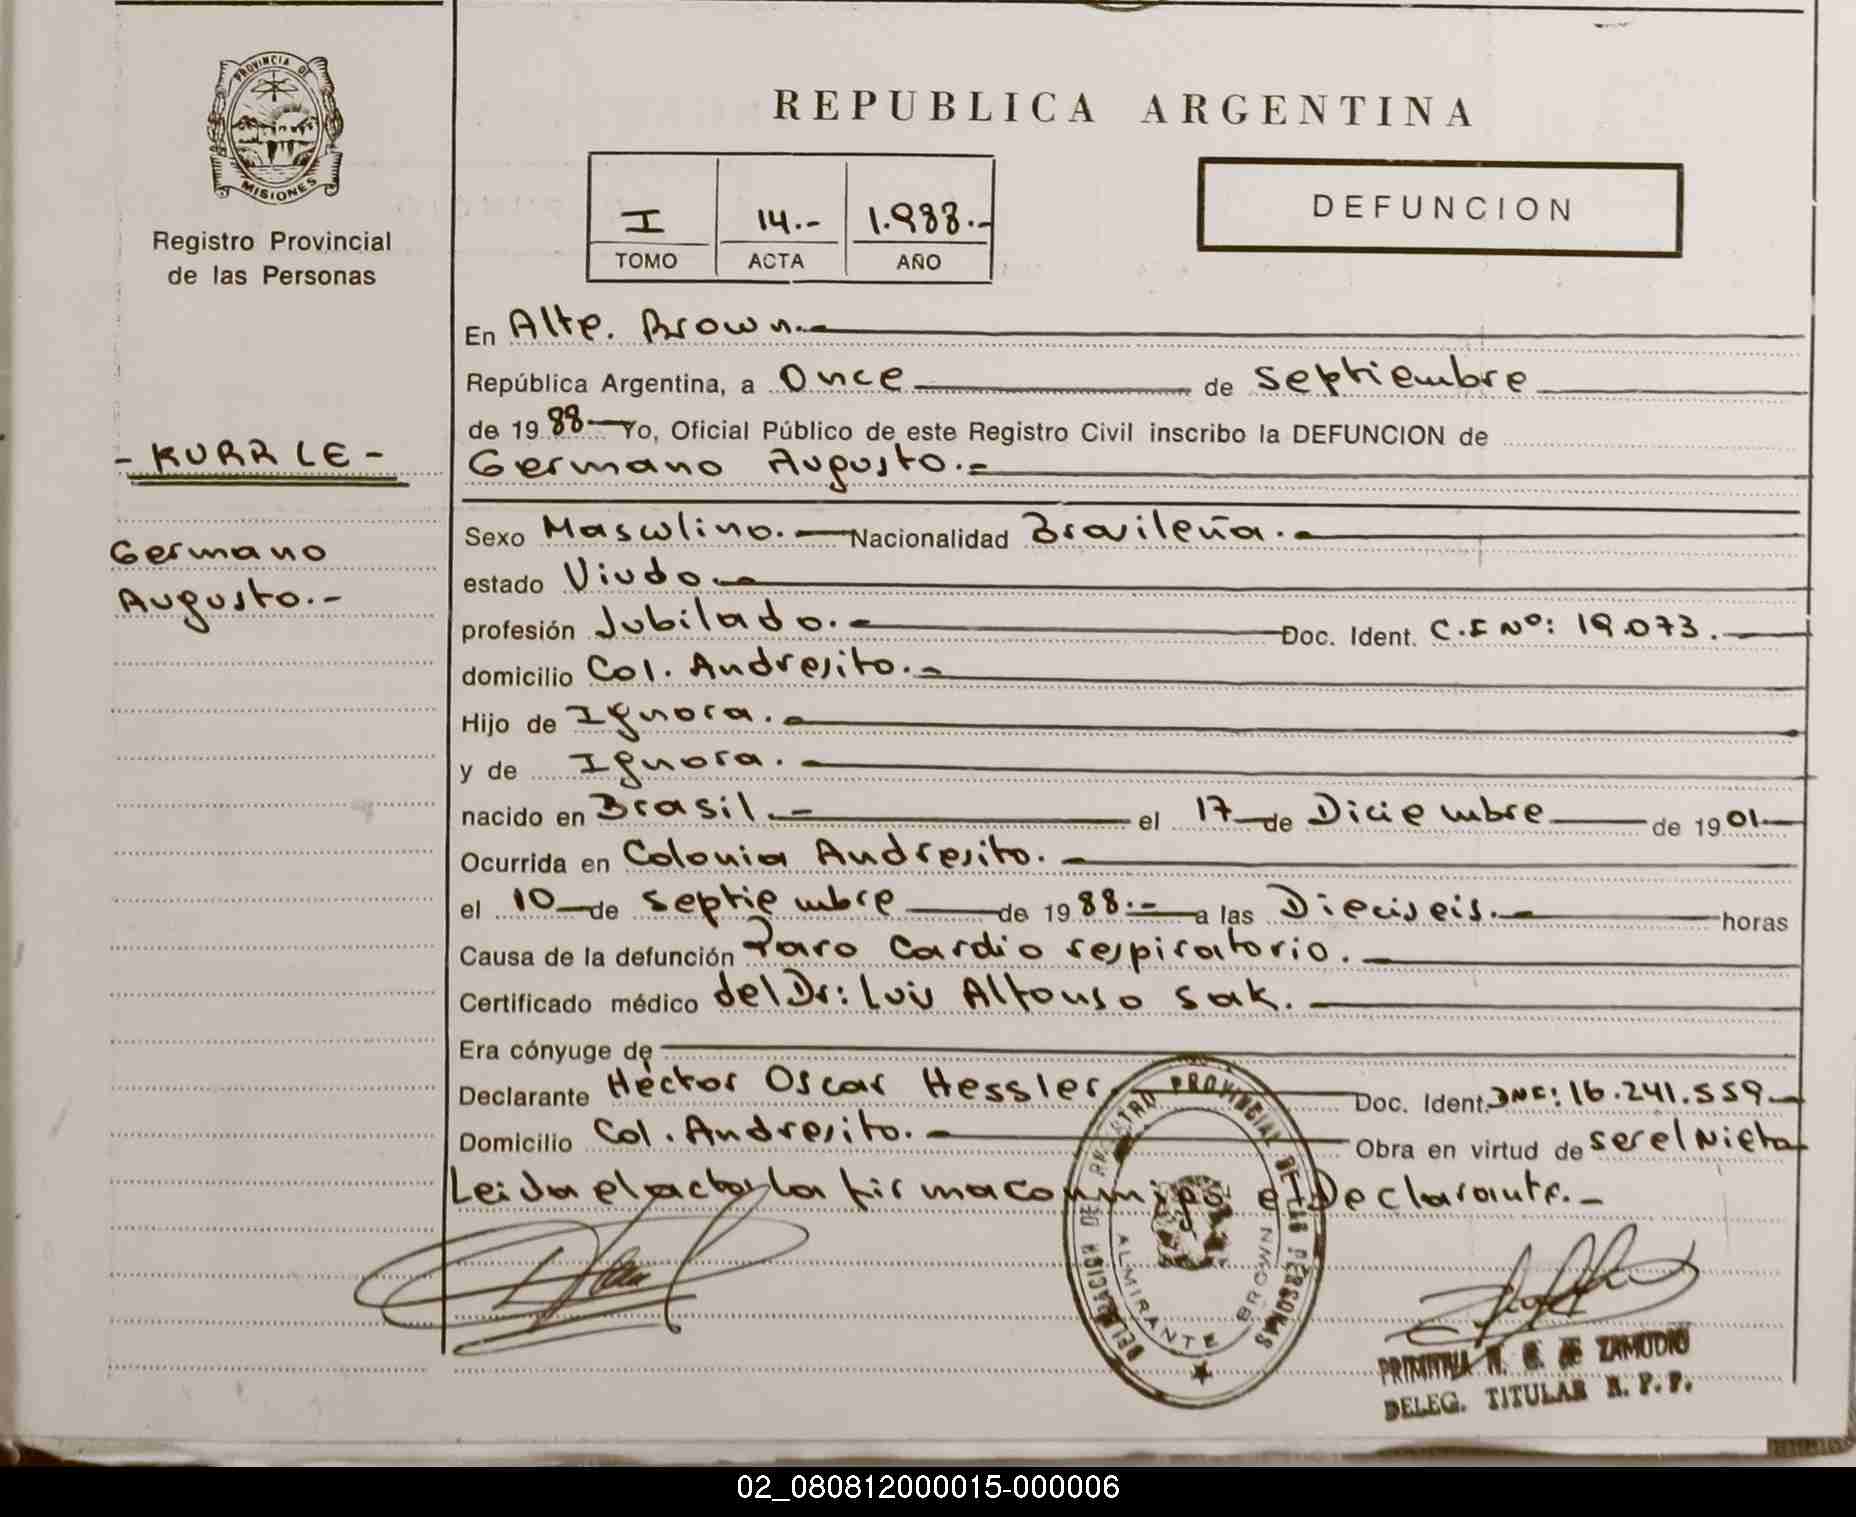 PROVINCIA DE
MISIONES
Registro Provincial
de las Personas
- KURRLE -
Germano
Augusto.-
REPUBLICA ARGENTINA
I 14.- 1.988.-
TOMO ACTA AÑO
DEFUNCION
En Alte. Brown.-
República Argentina, a Once de Septiembre
de 1988 Yo, Oficial Público de este Registro Civil inscribo la DEFUNCION de
Germano Augusto.-
Sexo Masculino.- Nacionalidad Brasileña.-
estado Viudo.-
profesión Jubilado.- Doc. Ident. C.I Nº: 19.073.-
domicilio Col. Andresito.-
Hijo de Ignora.-
y de Ignora.-
nacido en Brasil.- el 17 de Diciembre de 1901
Ocurrida en Colonia Andresito.-
el 10 de Septiembre de 1988.- a las Dieciseis.- horas
Causa de la defunción Paro Cardio respiratorio.-
Certificado médico del Dr: Luis Alfonso Sak.-
Era cónyuge de
Declarante Héctor Oscar Hessler Doc. Ident. DNI: 16.241.559
Domicilio Col. Andresito.- Obra en virtud de ser el Nieto
Leida el acta la firma conmigo el Declarante.-
DELEGACION REGISTRO PROVINCIAL DE LAS PERSONAS
ALMIRANTE BROWN
DE ZAMUDIO
DELEG. TITULAR R. P. P.
02_080812000015-000006